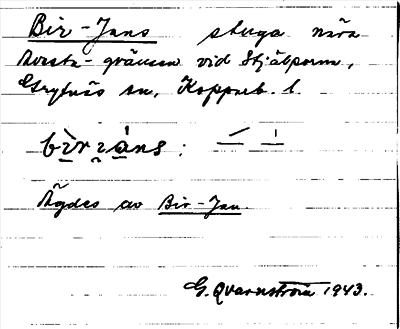 Bir-Jans stuga nära
Avesta-gränsen vid Stjälporna,
Grytnäs sn, Kopparb. l.
bìrɩáns:
Ägdes av Bir-Jan.
G. Qvarnström 1943.